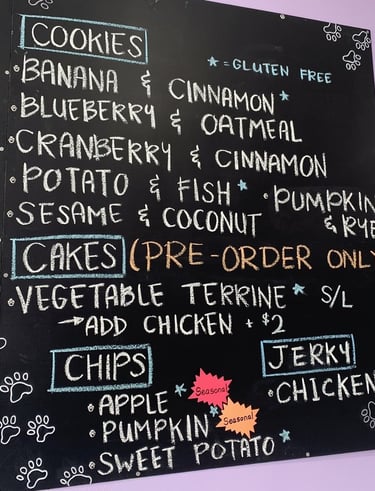 COOKIES
* = GLUTEN FREE
• BANANA & CINNAMON *
• BLUEBERRY & OATMEAL
• CRANBERRY & CINNAMON
• POTATO & FISH *
• PUMPKIN & RYE
• SESAME & COCONUT
CAKES (PRE-ORDER ONLY
• VEGETABLE TERRINE * S/L
→ ADD CHICKEN + $2
CHIPS
• APPLE * Seasonal
• PUMPKIN * Seasonal
• SWEET POTATO *
JERKY
• CHICKEN